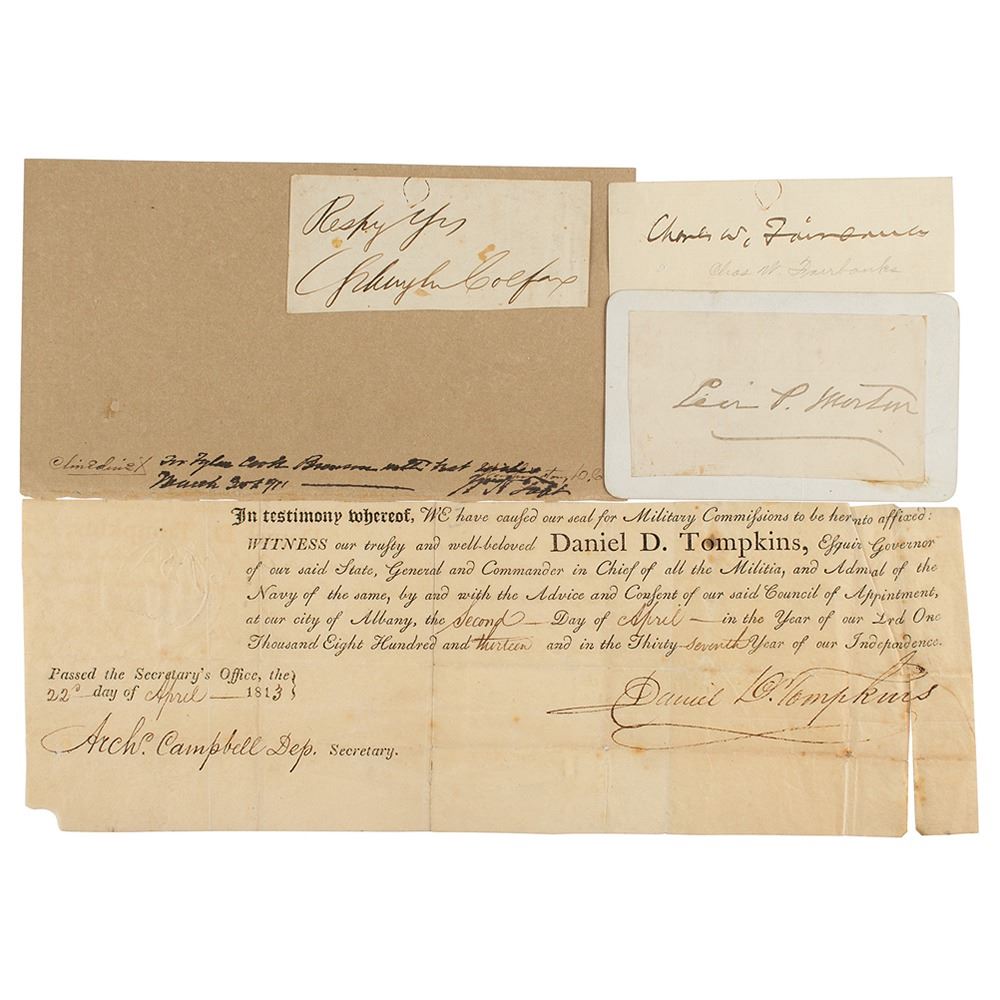 Respy Yrs
Schuyler Colfax
Charles W. Fairbanks
Chas W. Fairbanks
Levi P. Morton
Clinedinst
For Tyler Cook Brunson with best wishes
Washington, D.C.
March 3rd 911
In testimony whereof, WE have caused our seal for Military Commissions to be hernto affixed:
WITNESS our trusty and well-beloved Daniel D. Tompkins, Esquir Governor
of our said State, General and Commander in Chief of all the Militia, and Admal of the
Navy of the same, by and with the Advice and Consent of our said Council of Appointment,
at our city of Albany, the Second Day of April in the Year of our Lrd One
Thousand Eight Hundred and thirteen and in the Thirty-seventh Year of our Independence.
Passed the Secretary's Office, the
22d day of April 1813
Daniel D. Tompkins
Archd. Campbell Dep. Secretary.